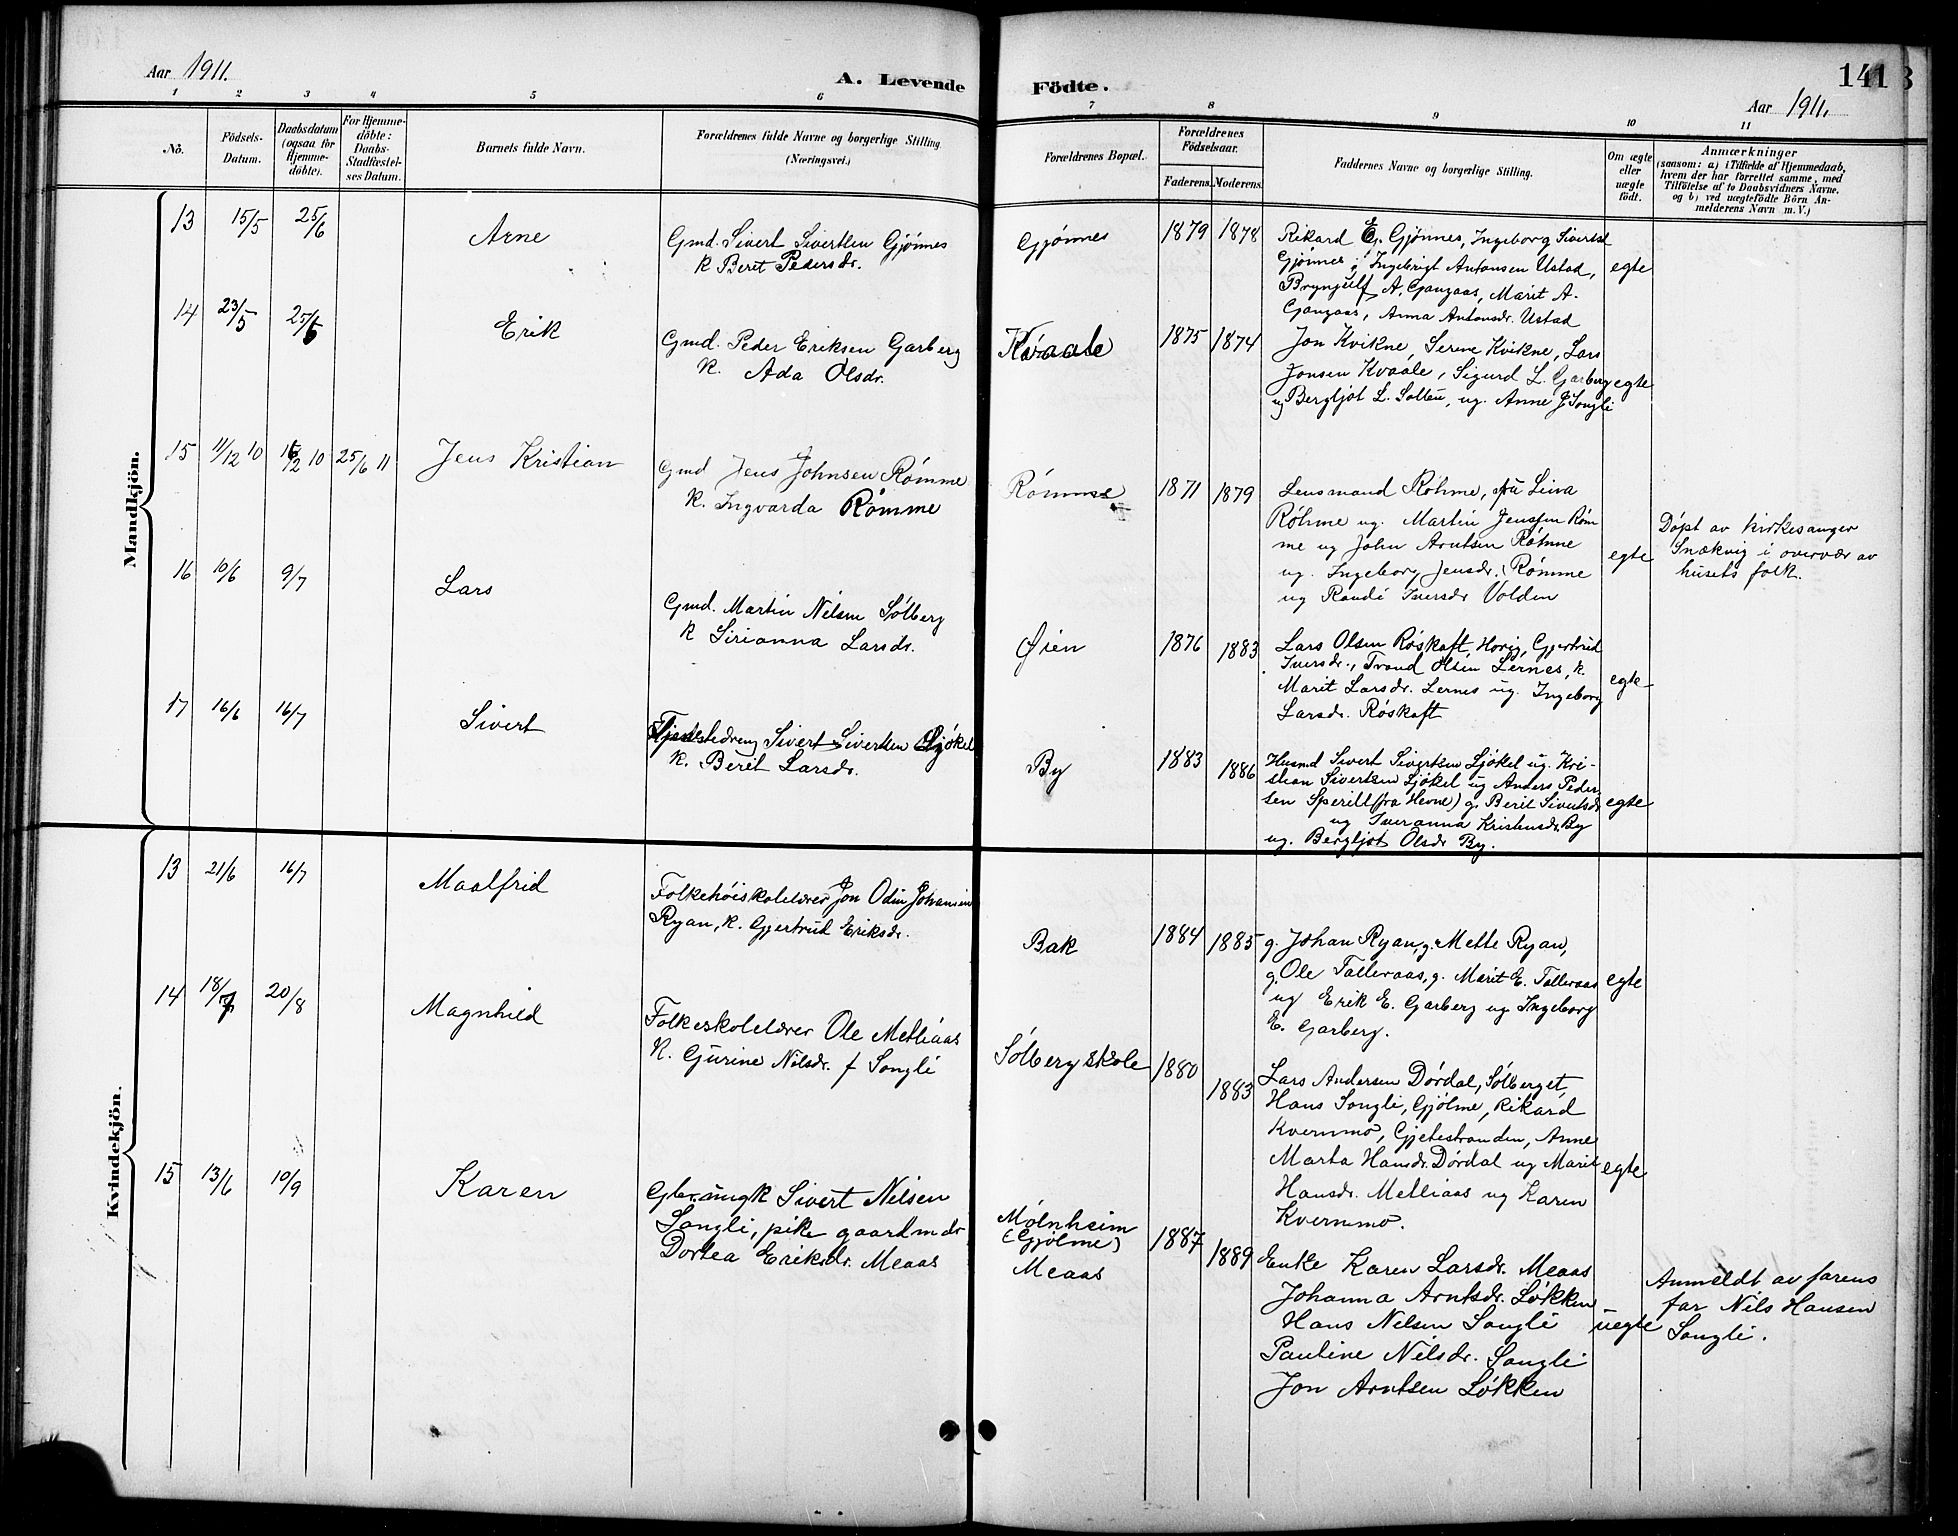 Aar 1911.
A. Levende
Födte.
141
Aar 1911.
1 2 3 4 5 6 7 8 9 10 11
No.
Födsels-
Datum.
Daabsdatum
(ogsaa for
Hjemme-
döbte).
For Hjemme-
döbte:
Daabs-
Stadfæstel-
ses Datum.
Barnets fulde Navn.
Forældrenes fulde Navne og borgerlige Stilling
(Næringsvei.)
Forældrenes Bopæl.
Forældrenes
Födselsaar.
Faderens. Moderens.
Faddernes Navne og borgerlige Stilling.
Om ægte
eller
uægte
födt.
Anmærkninger
(saasom: a) i Tilfælde af Hjemmedaab,
hvem der har forrettet samme, med
Tilföielse af to Daabsvidners Navne,
og b) ved uægtefödte Börn An-
melderens Navn m. V.)
Mandkjön.
13 15/5 25/6
Arne
Gmd. Sivert Sivertsen Gjönnes
k Berit Pedersdr.
Gjönnes
1879 1878
Rikard E. Gjönnes, Ingeborg Sivertsd
Gjönnes, Ingebrigt Antonsen Ustad,
Brynjulf A. Gangaas, Marit A.
Gangaas, Anna Antonsdr. Ustad
egte
14 23/5 25/6
Erik
Gmd. Peder Eriksen Garberg
k. Ada Olsdr.
Kvaale
1875 1874
Jon Kvikne, Serene Kvikne, Lars
Jonsen Kvaale, Sigurd L. Garberg
ug Bergljot L. Solbu, ug. Anne J Songli
egte
15 11/12 10 10 25/6 11
Jens Kristian
Gmd Jens Johnsen Römme
k. Ingvarda Römme
Römme
1871 1879
Lensmand Röhme, fru Lina
Röhme ug. Martin Jenssen Röm
me ug John Arntsen Römme
ug. Ingeborg Jensdr. Römme
ug Randi Iversdr Volden
egte
Döpt av kirkesanger
Snækvig i overvær av
husets folk.
16 10/6 9/7
Lars
Gmd. Martin Nilsen Sölberg
k Sirianna Larsdr.
Øien
1876 1883
Lars Olsen Röskaft, Horig, Gjertrud
Iversdr., Trond Olsen Lernes, k.
Marit Larsdr. Lernes ug. Ingeborg
Larsdr. Röskaft
egte
17 16/6 16/7
Sivert
Tjenestedreng Sivert Sivertsen Ljökel
k. Berit Larsdr.
By
1883 1886
Husmd Sivert Sivertsen Ljökel ug. Kri-
stian Sivertsen Ljökel ug Anders Peder
sen Sperill (fra Hevne) g. Berit Sivertsdr
ug Iveranna Kristensdr. By
ug. Bergljot Olsdr By.
egte
Kvindekjön.
13 21/6 16/7
Maalfrid
Folkehöiskolelærer Jon Odin Johansen
Ryan, k. Gjertrud Eriksdr.
Bak
1884 1885
g. Johan Ryan, g. Mette Ryan,
g. Ole Talleraas, g. Marit E. Talleraas
ug Erik E. Garberg ug Ingeborg
E. Garberg.
egte
14 18/7 20/8
Magnhild
Folkeskolelærer Ole Metliaas
k. Gurine Nilsdr. f Songli
Sölberg skole
1880 1883
Lars Andersen Dördal, Sölberget,
Hans Songli, Gjölme, Rikard
Kvernmo, Gjetestranden, Anne
Marta Hansdr. Dördal ug Marit
Hansdr. Metliaas ug Karen
Kvernmo.
egte
15 13/6 10/9
Karen
Gbr. ungk Sivert Nilsen
Songli, pike gaardmdr
Dortea Eriksdr. Meaas
Mölnheim
(Gjölme)
Meaas
1887 1889
Enke Karen Larsdr. Meaas
Johanna Arntsdr. Lökken
Hans Nilsen Songli
Pauline Nilsdr. Songli
Jon Arntsen Lökken
uegte
Anmeldt av farens
far Nils Hansen
Songli.